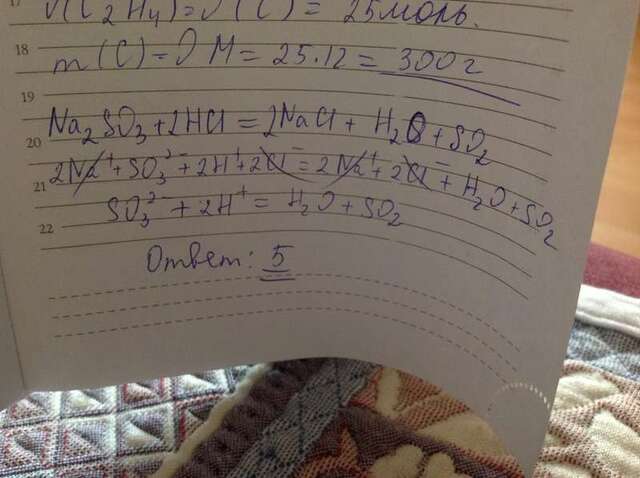 17 ν(C₂H₄) = ν(C) = 25моль.
18 m(C) = ν M = 25·12 = 300г
19
Na₂SO₃ + 2HCl = 2NaCl + H₂O + SO₂
20
2Na⁺ + SO₃²⁻ + 2H⁺ + 2Cl⁻ = 2Na⁺ + 2Cl⁻ + H₂O + SO₂
21
SO₃²⁻ + 2H⁺ = H₂O + SO₂
22
Ответ: 5